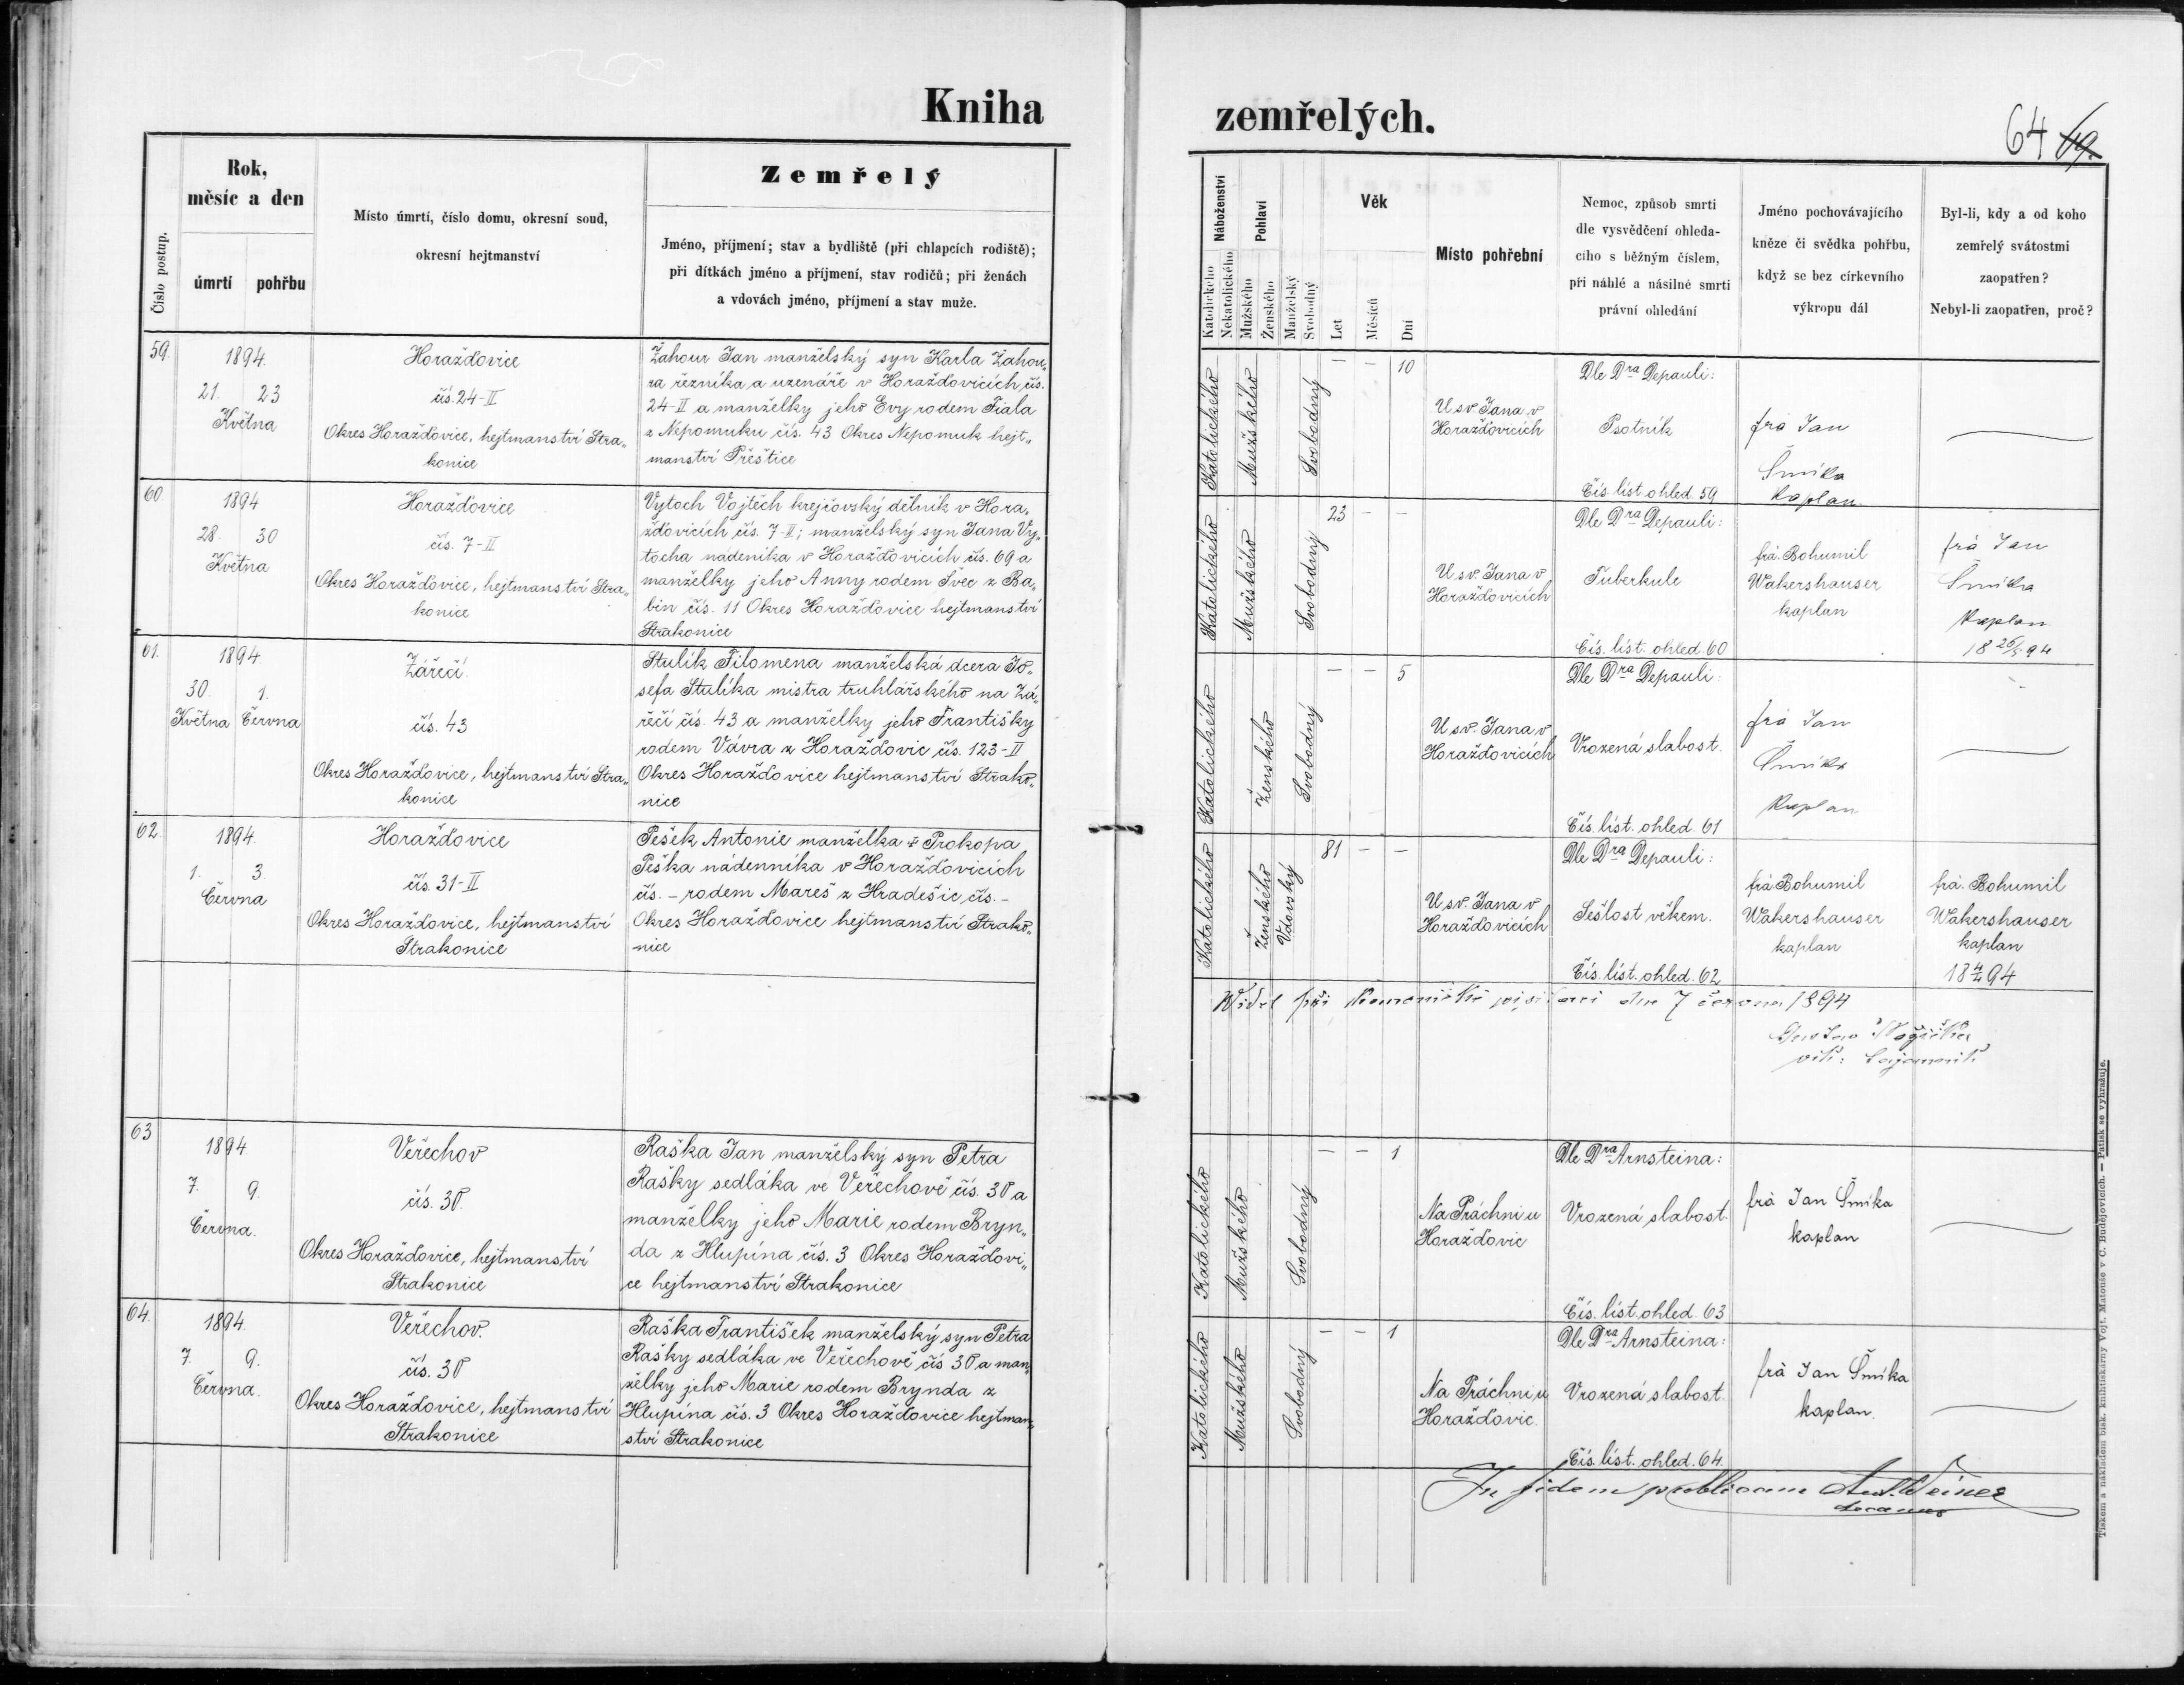 Kniha
zemřelých.
64 69.
Číslo postup.
Rok,
měsíc a den
úmrtí pohřbu
Místo úmrtí, číslo domu, okresní soud,
okresní hejtmanství
Zemřelý
Jméno, příjmení; stav a bydliště (při chlapcích rodiště);
při dítkách jméno a příjmení, stav rodičů; při ženách
a vdovách jméno, příjmení a stav muže.
Náboženství
Katolického
Nekatolického
Pohlaví
Mužského
Ženského
Manželský
Svobodný
Věk
Let
Měsíců
Dní
Místo pohřební
Nemoc, způsob smrti
dle vysvědčení ohleda-
cího s běžným číslem,
při náhlé a násilné smrti
právní ohledání
Jméno pochovávajícího
kněze či svědka pohřbu,
když se bez církevního
výkropu dál
Byl-li, kdy a od koho
zemřelý svátostmi
zaopatřen?
Nebyl-li zaopatřen, proč?
59.
1894.
21. 23
Května
Horažďovice
čís. 24-II
Okres Horažďovice, hejtmanství Stra„
konice
Žahour Jan manželský syn Karla Žahou„
ra řezníka a uzenáře v Horažďovicích čís.
24-II a manželky jeho Evy rodem Fiala
z Nepomuku čís. 43 Okres Nepomuk hejt„
manství Přeštice
Katolického
Mužského
Svobodný
— — 10
U sv. Jana v
Horažďovicích
Dle Dra Depauli:
Psotník
Čís. list. ohled. 59
frá Jan
Šmíka
kaplan.
60
1894
28. 30
Května
Horažďovice
čís. 7-II
Okres Horažďovice, hejtmanství Stra„
konice
Vytoch Vojtěch krejčovský dělník v Hora„
žďovicích čís. 7-II; manželský syn Jana Vy„
tocha nádeníka v Horažďovicích čís. 69 a
manželky jeho Anny rodem Švec z Ba„
bin čís. 11 Okres Horažďovice hejtmanství
Strakonice
Katolického
Mužského
Svobodný
23 — —
U sv. Jana v
Horažďovicích
Dle Dra Depauli:
Tuberkule
Čís. list. ohled. 60
frá. Bohumil
Wakershauser
kaplan
frá Jan
Šmíka
Kaplan
18 26/5 94
61.
1894.
30. 1.
Května Června
Zářečí
čís. 43
Okres Horažďovice, hejtmanství Stra„
konice
Stulík Filomena manželská dcera Jo„
sefa Stulíka mistra truhlářského na Zá„
řečí čís. 43 a manželky jeho Františky
rodem Vávra z Horažďovic čís. 123-II
Okres Horažďovice hejtmanství Strako„
nice
Katolického
Ženského
Svobodný
— — 5
U sv. Jana v
Horažďovicích
Dle Dra Depauli:
Vrozená slabost.
Čís. list. ohled. 61
frá Jan
Šmíka
Kaplan
62.
1894.
1. 3.
Června
Horažďovice
čís. 31-II
Okres Horažďovice, hejtmanství
Strakonice
Pešek Antonie manželka † Prokopa
Peška nádenníka v Horažďovicích
čís. – rodem Mareš z Hradešic, čís. –
Okres Horažďovice hejtmanství Strako„
nice
Katolického
Ženského
Vdovský
81 — —
U sv. Jana v
Horažďovicích
Dle Dra Depauli:
Sešlost věkem.
Čís. list. ohled. 62
frá Bohumil
Wakershauser
kaplan
frá. Bohumil
Wakershauser
kaplan
18 4/4 94
Viděl při kanonické visitaci dne 7 června 1894
63
1894
7. 9.
Června.
Veřechov
čís. 30.
Okres Horažďovice, hejtmanství
Strakonice
Raška Jan manželský syn Petra
Rašky sedláka ve Veřechově čís. 30 a
manželky jeho Marie rodem Bryn„
da z Hlupína čís. 3 Okres Horažďovi„
ce hejtmanství Strakonice
Katolického
Mužského
Svobodný
— — 1
Na Práchni u
Horažďovic
Dle Dra Arnsteina:
Vrozená slabost.
Čís. list. ohled. 63
frá Jan Šmíka
kaplan
64.
1894
7. 9.
Června.
Veřechov.
čís. 30
Okres Horažďovice, hejtmanství
Strakonice
Raška František manželský syn Petra
Rašky sedláka ve Veřechově čís 30 a man„
želky jeho Marie rodem Brynda z
Hlupína čís. 3 Okres Horažďovice hejtman„
ství Strakonice
Katolického
Mužského
Svobodný
— — 1
Na Práchni u
Horažďovic.
Dle Dra Arnsteina:
Vrozená slabost
Čís. list. ohled. 64.
frá Jan Šmíka
kaplan.
In fidem publicam Ant. Weiner
decanus
Tiskem a nákladem bisk. knihtiskárny Vojt. Matouše v Č. Budějovicích. — Patisk se vyhražuje.